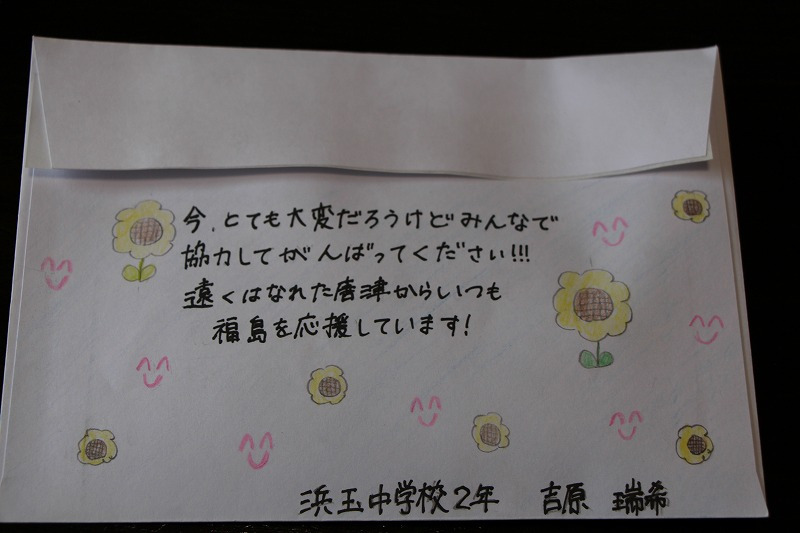 今、とても大変だろうけどみんなで
協力してがんばってください!!!
遠くはなれた唐津からいつも
福島を応援しています!
浜玉中学校2年 吉原 瑞希